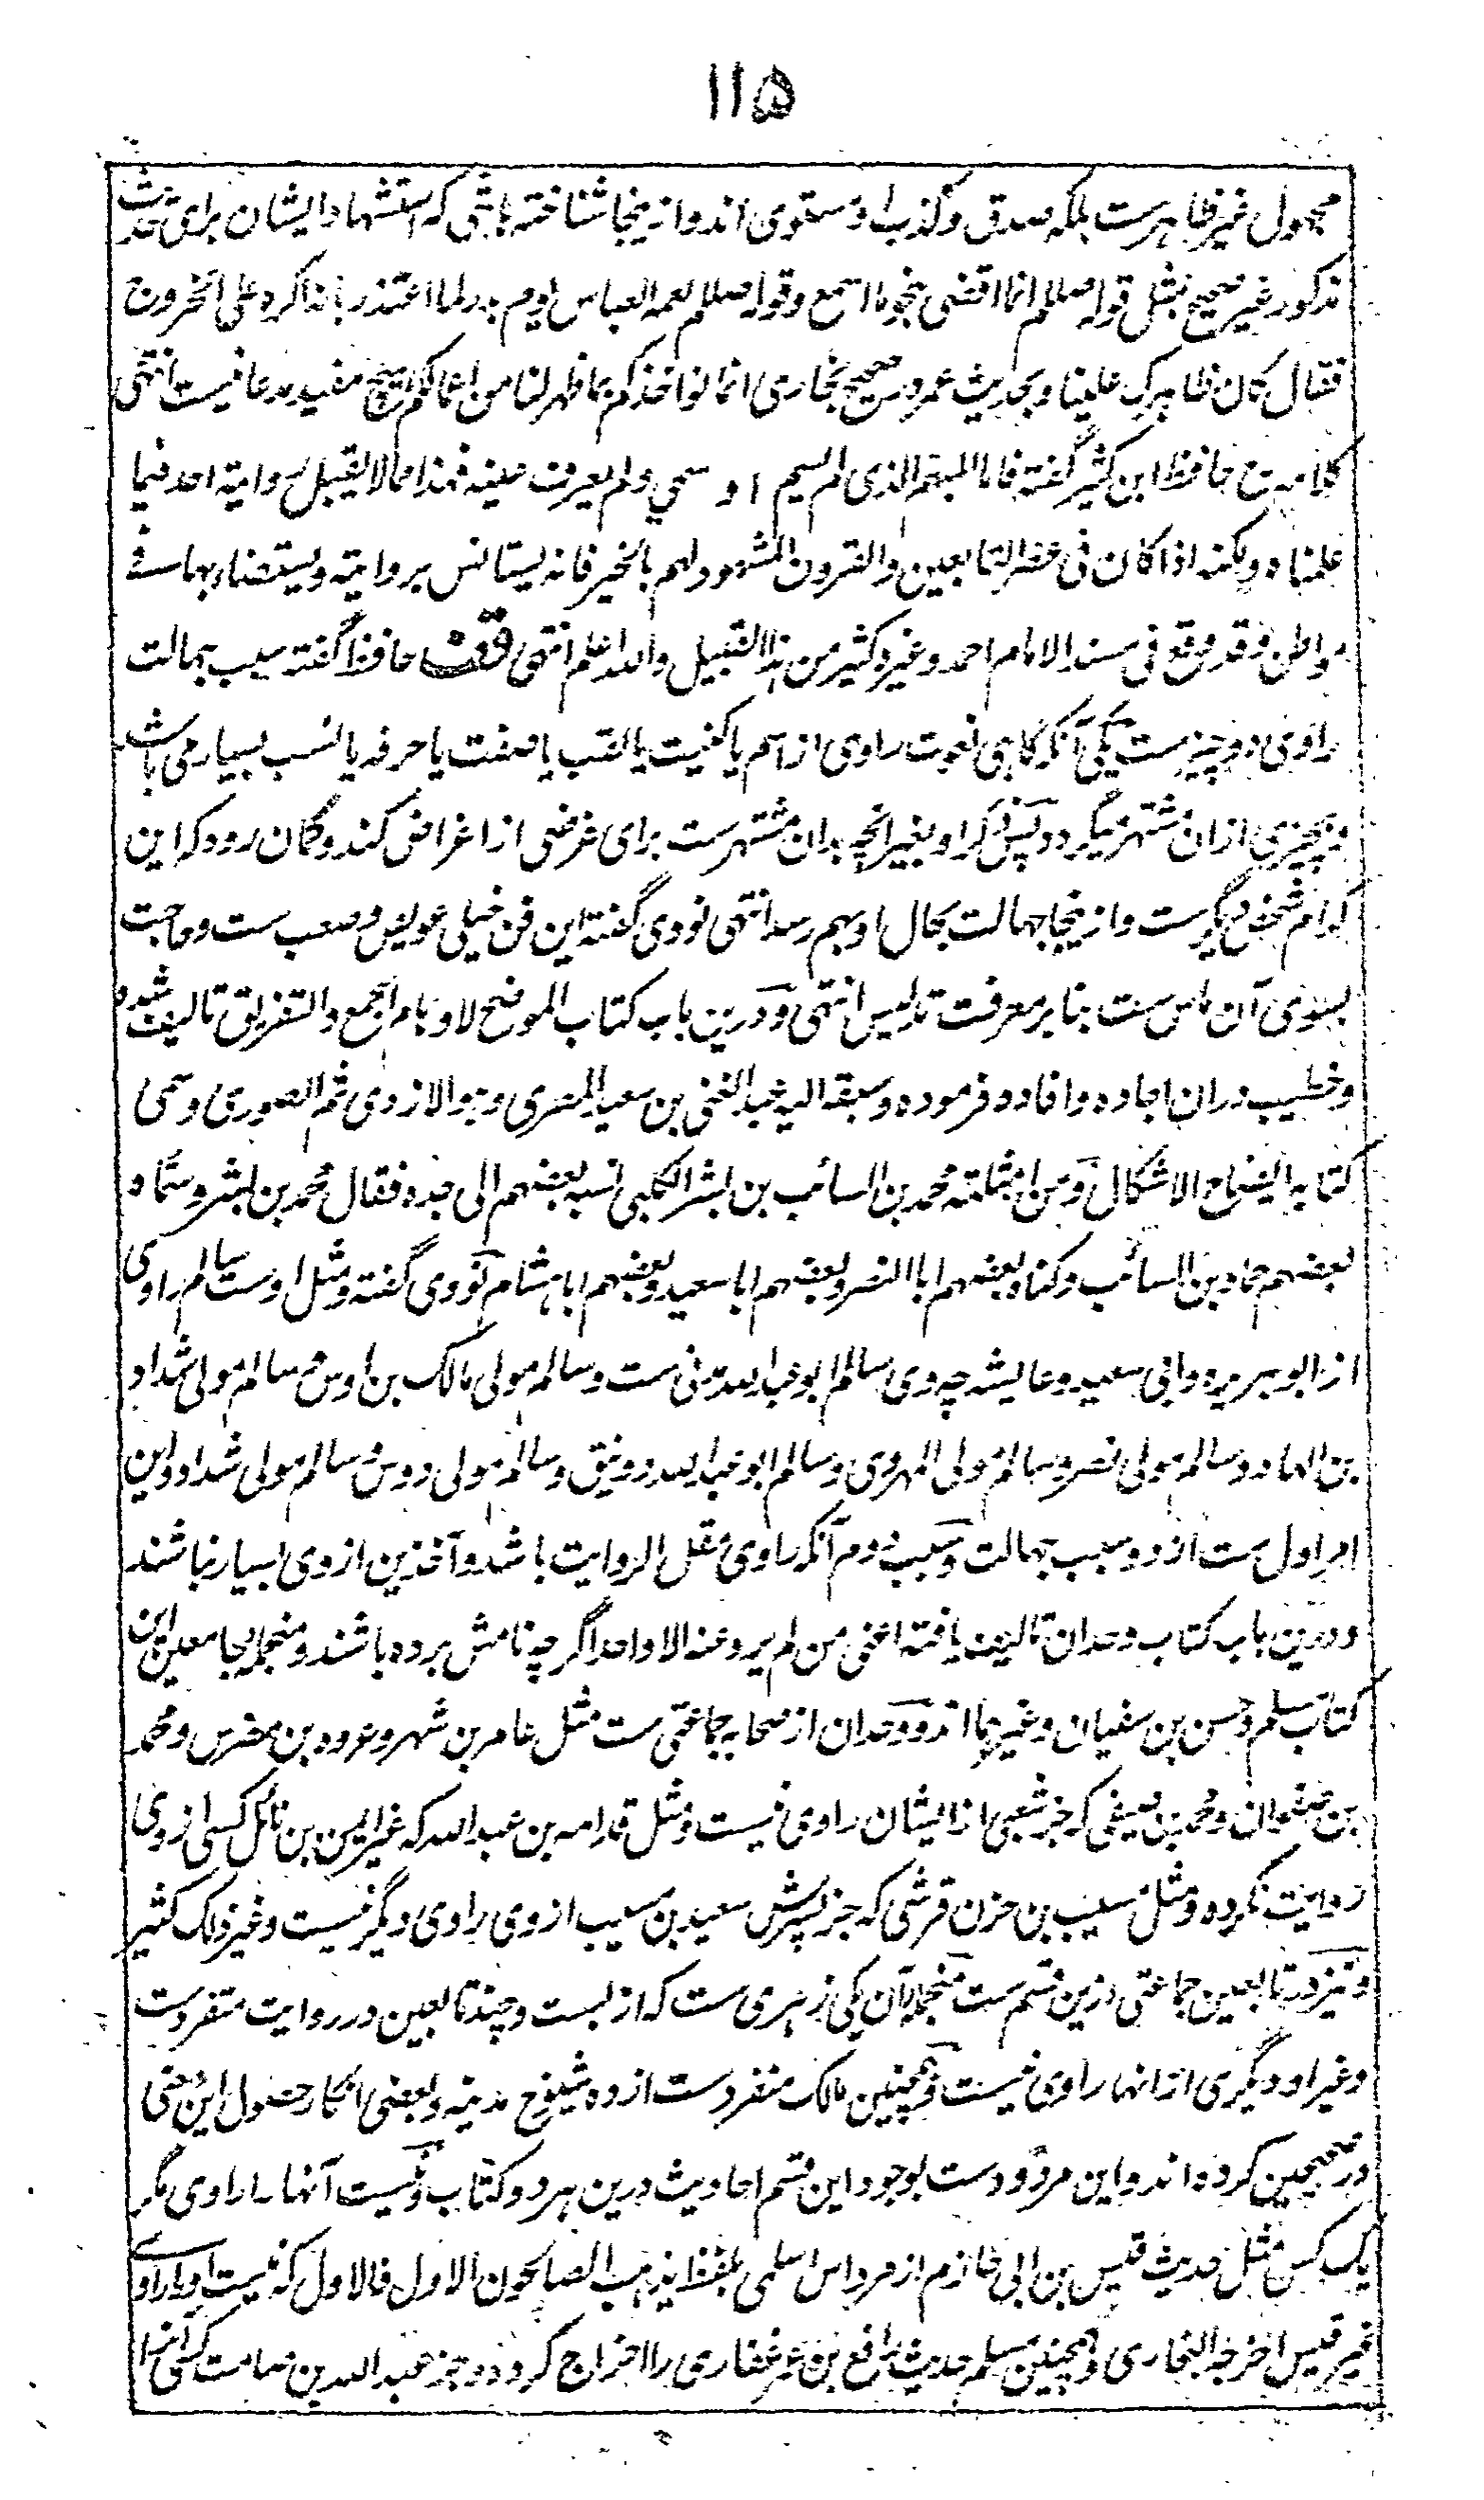 ۱۱۵
مجهول غیر ظاهرست بلکه صدق و کذب او مستوی اند و ازینجا شناخته باشی که استشهاد ایشان برای حدیث
مذکور غیر صحیح بمثل قوله صللم انما اقضی بنحو ما اسمع و قوله صللم لعمه العباس یوم بدر لما اعتذر بانه اکره علی الخروج
فقال کان ظاهرک علینا و بحدیث عمر در صحیح بخاری انما نواخذکم بما ظهر لنا من اعمالکم مفید مدعا نیست انتهی
کلامه حافظ ابن کثیر گفته فاما المبهم الذی لم یسم او سمی و لم یعرف عینه فهذا مما لا یقبل روایته احد فیما
علمناه ولکنه اذا کان فی عصر التابعین والقرون المشهود لهم بالخیر فانه یستانس بروایته ویستضاء بها فے
مواطن وقد وقع فی مسند الامام احمد وغیره کثیر من هذا القبیل والله اعلم انتهی قف حافظ گفته سبب جهالت
راوی دو چیزست یکی آنکه گاهی نعوت راوی از اسم یا کنیت یا لقب یا صفت یا حرفه یا نسب بسیار می باشد
و بچیزی ازان مشتهر میگردد پس ذکر او بغیر آنچه بدان مشتهرست برای غرضی از اغراض کند و گمان رود که این
کدام شخص دیگرست و ازینجا جهالت بحال او بهم رسد انتهی نووی گفته این فن خیلی عویص و صعب ست و حاجت
بسوی آن ماس ست بنابر معرفت تدلیس انتهی و درین باب کتاب الموضح لاوهام الجمع والتفریق تالیف شده
و خطیب دران اجاده و افاده فرموده و سبقه الیه عبدالغنی بن سعید المصری وهو الازدی ثم الصوری و سمی
کتابه ایضاح الاشکال و من امثلته محمد بن السائب بن بشر الکلبی نسبه بعضهم الی جده فقال محمد بن بشر وسماه
بعضهم حماد بن السائب وکناه بعضهم ابا النضر وبعضهم ابا سعید وبعضهم ابا هشام نووی گفته و مثل اوست سالم راوی
از ابو هریره و ابی سعید و عایشه چه وی سالم ابو عبدالله مدنی ست و سالم مولی مالک بن اوس و سالم مولی شداد
بن الهاد و سالم مولی نصر و سالم مولی المهری و سالم ابو عبدالله دوسی و سالم مولی دوس و سالم مولی شداد و این
امر اول ست از دو سبب جهالت و سبب دوم آنکه راوی مقل الروایت باشد و آخذین از وی بسیار نباشند
و درین باب کتاب وحدان تالیف یافته اعنی من لم یرو عنه الا واحد اگرچه نامش برده باشند و منجمله جامعین این
کتاب مسلم و حسن بن سفیان و غیرهما اند و وحدان از صحابه جماعتی ست مثل عامر بن شهر و عروه بن مضرس و محمد
بن صفوان و محمد بن صیفی که جز شعبی از ایشان راوی نیست و مثل قدامه بن عبدالله که غیر ایمن بن نائل کسی از وی
روایت نکرده و مثل مسیب بن حزن قرشی که جز پسرش سعید بن مسیب از وی راوی دیگر نیست و غیر ذلک کثیر
و نیز در تابعین جماعتی ازین قسم ست منجمله آن یکی زهری ست که از بست و چند تابعین در روایت متفردست
و غیر او دیگری از انها راوی نیست و همچنین مالک متفردست از ده شیوخ مدینه و بعضی انکار حصول این معنی
در صحیحین کرده اند و این مردودست بوجود این قسم احادیث درین هر دو کتاب و نیست آنها را راوی مگر
یک کس مثل حدیث قیس بن ابی حازم از مرداس اسلمی بلفظ یذهب الصالحون الاول فالاول که نیست او را راوے
غیر قیس اخرجه البخاری و همچنین مسلم حدیث رافع بن عمرو غفاری را اخراج کرده و جز عبدالله بن صامت کسی آنرا